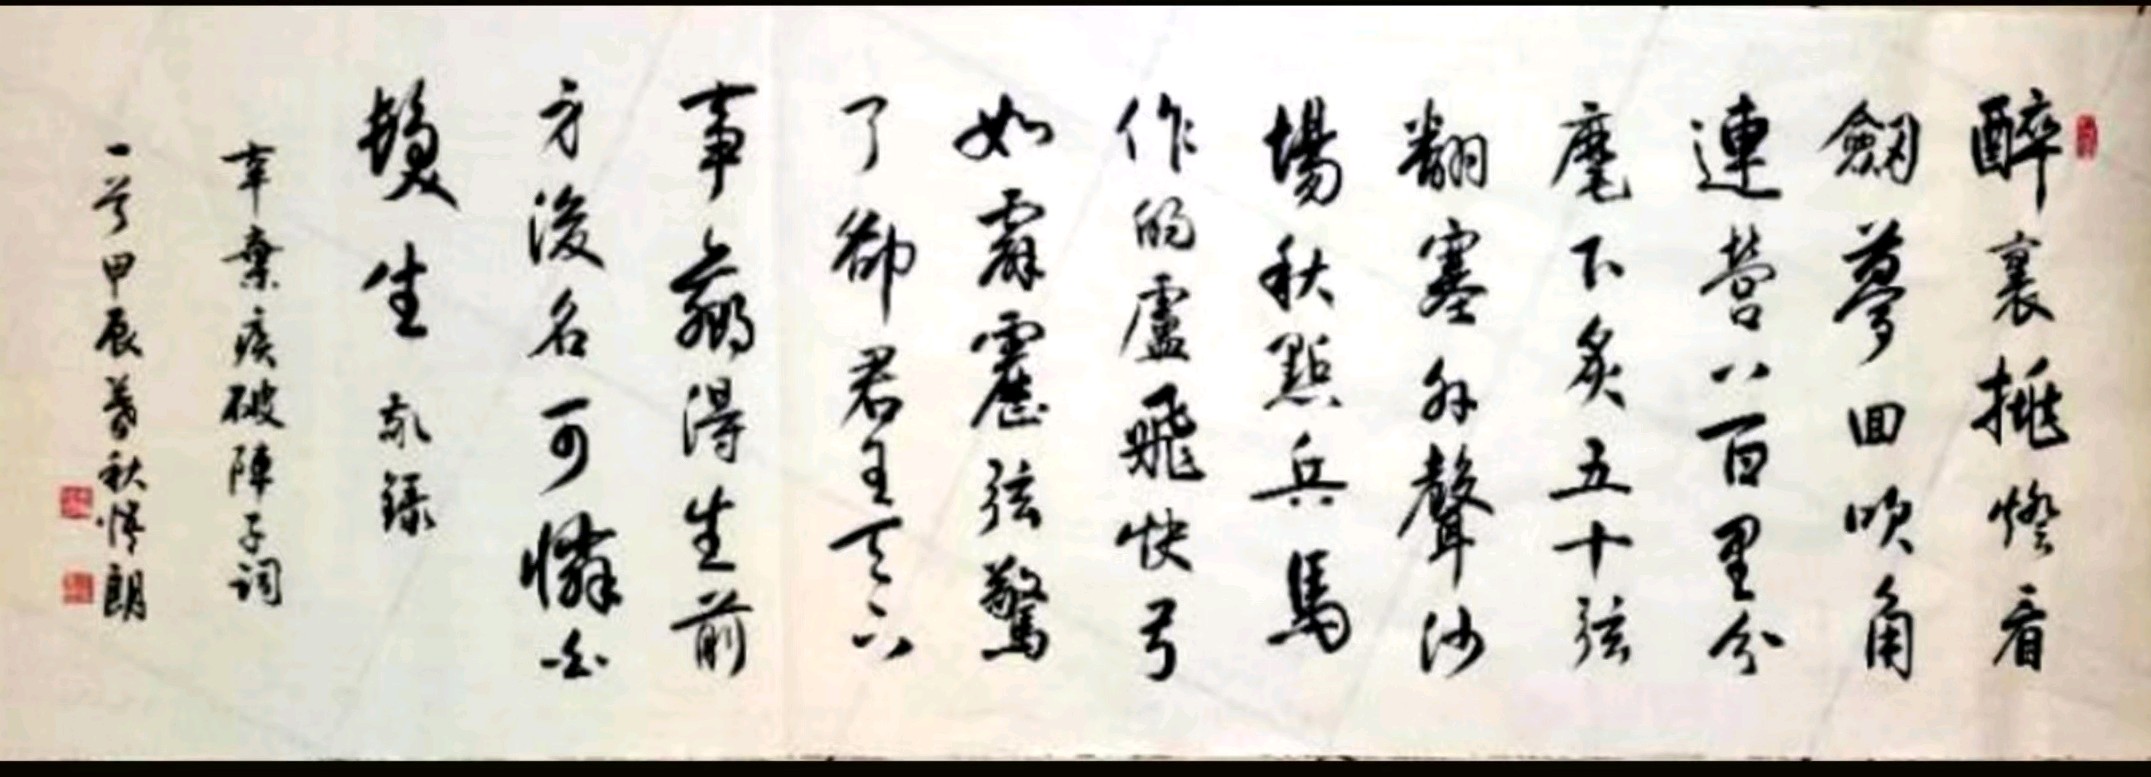 醉裏挑燈看
劒夢回吹角
連營八百里分
麾下炙五十弦
翻塞外聲沙
場秋點兵馬
作的盧飛快弓
如霹靂弦驚
了卻君王天下
事贏得生前
身後名可憐白
髮生 敬錄
辛棄疾破陣子詞
甲辰暮秋 朗